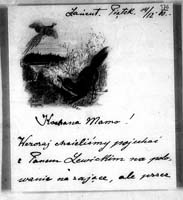 Łańcut. Piątek 14/12
Kochana Mamo!
Wczoraj chcieliśmy pojechać
z Panem Lewickim na polo-
wanie na zające, ale przez